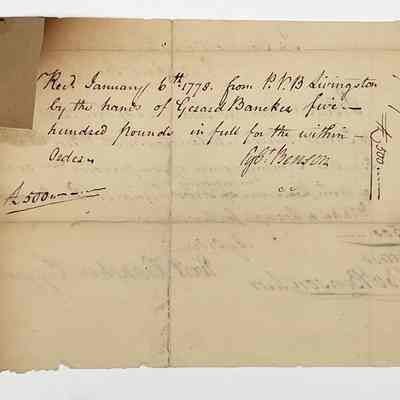 Recd. January 6th. 1778. from P. V. B Livingston
by the hands of Gerard Bancker five —
hundred pounds in full for the within —
Order
Egbt. Benson
£500
£500